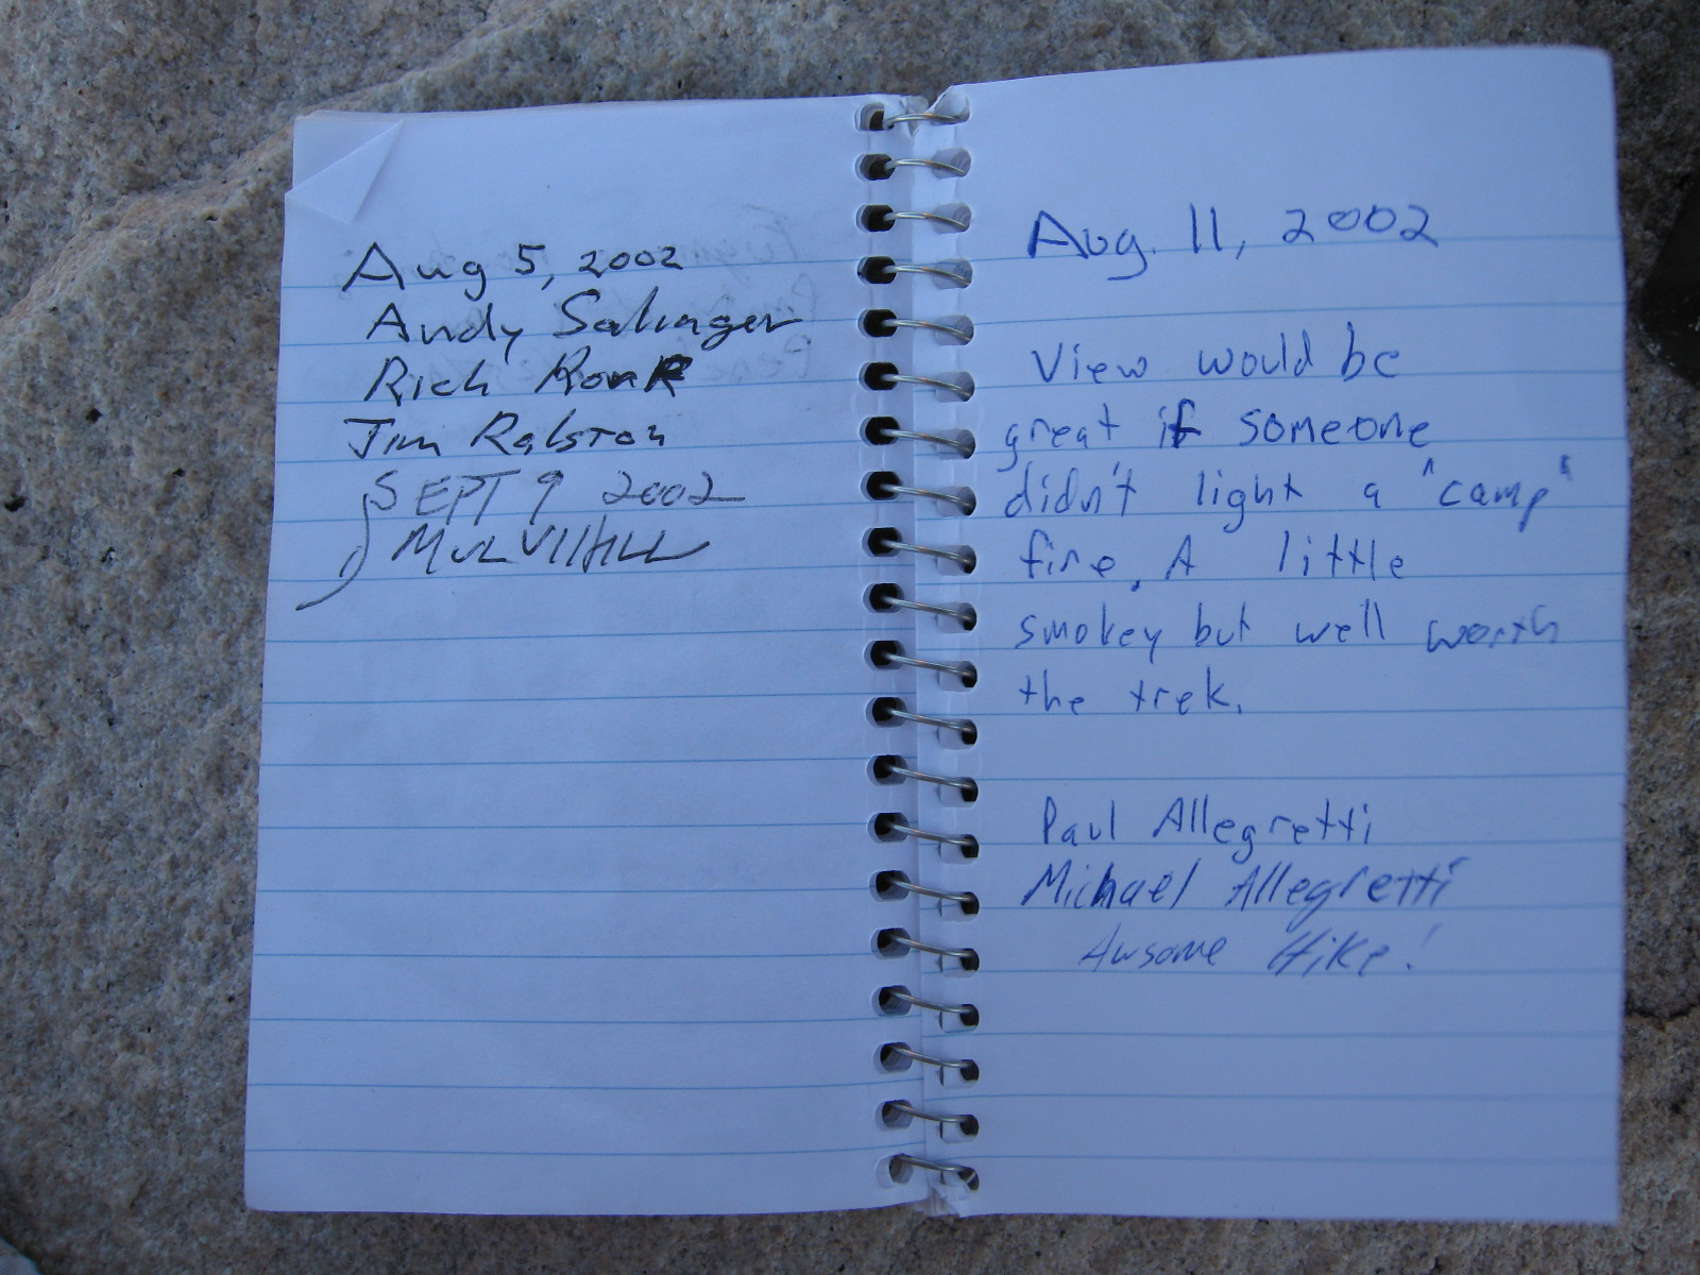 Aug 5, 2002
Andy Salinger
Rich Ronk
Jim Ralston
SEPT 9 2002
J MULVIHILL
Aug. 11, 2002
View would be
great if someone
didn't light a "camp"
fire. A little
smokey but well worth
the trek.
Paul Allegretti
Michael Allegretti
Awsome Hike!